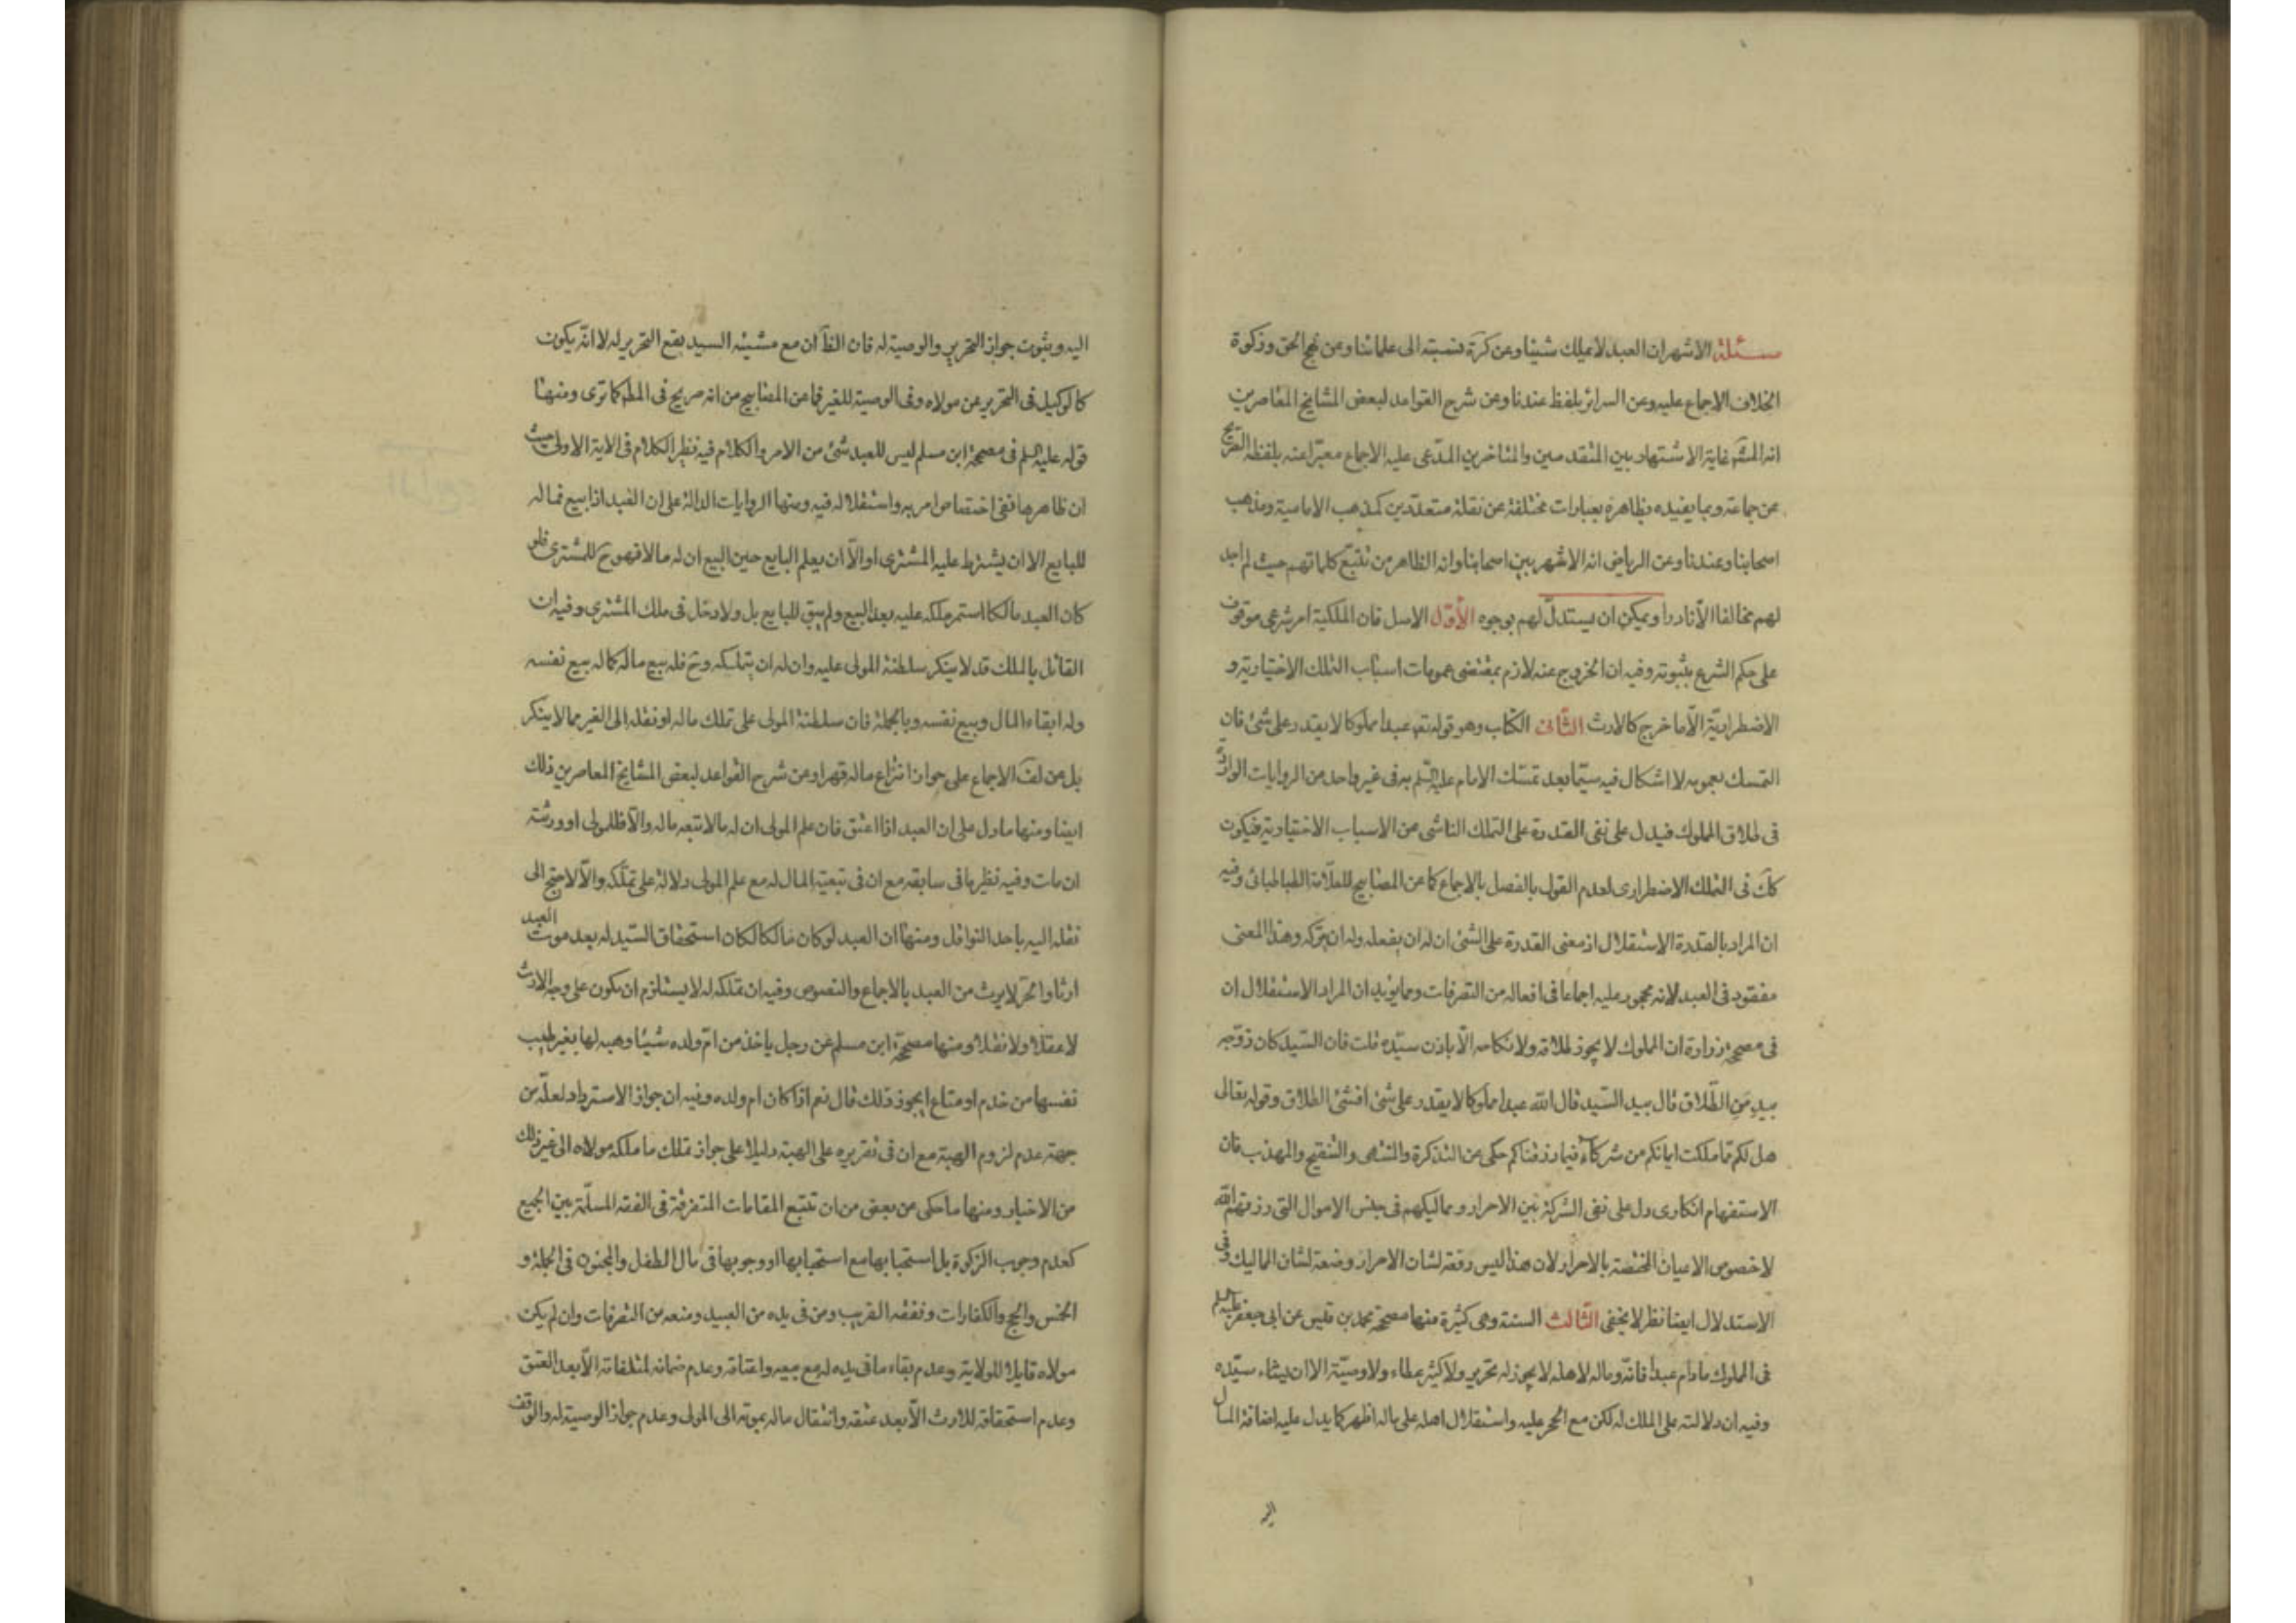 مسئلة الاشهر ان العبد لا يملك شيئا وعن كرة نسبته الى علمائنا وعن نهج الحق وزكوة
الخلاف الاجماع عليه وعن السرائر بلفظ عندنا وعن شرح القواعد لبعض المشايخ المعاصرين
انه المشهور غاية الاشتهار بين المتقدمين والمتاخرين المدّعى عليه الاجماع معبّرا عنه بلفظه الصريح
عن جماعة وبما يفيده بظاهره بعبارات مختلفة عن نقلة متعدّدين كمذهب الامامية ومذهب
اصحابنا وعندنا وعن الرياض انه الاشهر بين اصحابنا وانه الظاهر من تتبّع كلماتهم حيث لم اجد
لهم مخالفا الّا نادرا ويمكن ان يستدلّ لهم بوجوه الأوّل الاصل فان الملكية امر شرعى موقوف
على حكم الشرع بثبوته وفيه ان الخروج عنه لازم بمقتضى عمومات اسباب التملك الاختيارية و
الاضطراريّة الّا ما خرج كالارث الثّانى الكتاب وهو قوله تعـ عبدا مملوكا لا يقدر على شئ فان
التمسك بعمومه لا اشكال فيه سيّما بعد تمسّك الامام عليه السّلم به فى غير واحد من الروايات الواردة
فى طلاق المملوك فيدل على نفى القدرة على التملك الناشى من الاسباب الاختيارية فيكون
كك فى التملك الاضطرارى لعدم القول بالفصل بالاجماع كما عن المصابيح للعلّامة الطباطبائى وفيه
ان المراد بالقدرة الاستقلال اذ معنى القدرة على الشئ ان له ان يفعله وله ان يتركه وهذا المعنى
مفقود فى العبد لانه محجور عليه اجماعا فى افعاله من التصرفات ومما يؤيد ان المراد الاستقلال ان
فى مصححة زرارة ان المملوك لا يجوز طلاقه ولا نكاحه الّا باذن سيّده قلت فان السّيد كان زوّجه
بيد من الطّلاق قال بيد السّيد قال الله عبدا مملوكا لا يقدر على شئ افشئ الطلاق وقوله تعالى
هل لكم مما ملكت ايمانكم من شركاء فيما رزقناكم حكى عن التذكرة والمنتهى والتنقيح والمهذب فان
الاستفهام انكارى دل على نفى الشركة بين الاحرار ومماليكهم فى جنس الاموال التى رزقهم الله
لا خصوص الاعيان المختصة بالاحرار لان هذا ليس رفعة لشان الاحرار وضعة لشان المماليك وفى
الاستدلال ايضا نظر لا يخفى الثّالث السنة وهى كثيرة منها مصححة محمد بن قيس عن ابى جعفر عليه السلم
فى المملوك ما دام عبدا فانّه وماله لاهله لا يجوز له تحرير ولا كثير عطاء ولا وصيّة الا ان يشاء سيّده
وفيه ان دلالته على الملك له لكن مع الحجر عليه واستقلال اهله على ماله اظهر كما يدل عليه اضافة المال
اليه
اليه وثبوت جواز التحرير والوصية له فان الظّ ان مع مشيئة السيد يقع التحرير له لا انّه يكون
كالوكيل فى التحرير عن مولاه وفى الوصية للغير فما عن المصابيح من انه صريح فى المط كما ترى ومنها
قوله عليه السلم فى مصححة ابن مسلم ليس للعبد شئ من الامر والكلام فيه نظير الكلام فى الاية الاولى حيث
ان ظاهرها نفى اختصاص امر به واستقلاله فيه ومنها الروايات الدالة على ان العبد اذا بيع فماله
للبايع الا ان يشترط عليه المشترى او الّا ان يعلم البايع حين البيع ان له مالا فهو ح للمشترى فلو
كان العبد مالكا استمر ملكه عليه بعد البيع ولم يبق للبايع بل ولا دخل فى ملك المشترى وفيه ان
القائل بالملك قد لا ينكر سلطنة المولى عليه وان له ان يتملكه وح فله بيع ماله كما له بيع نفسه
وله ابقاء المال وبيع نفسه وبالجملة فان سلطنة المولى على تملك ماله او نقله الى الغير مما لا ينكر
بل عن لف الاجماع على جواز انتزاع ماله قهرا وعن شرح القواعد لبعض المشايخ المعاصرين ذلك
ايضا ومنها ما دل على ان العبد اذا اعتق فان علم المولى ان له مالا تبعه ماله والّا فللمولى او ورثته
ان مات وفيه نظير ما فى سابقه مع ان فى تبعية المال له مع علم المولى دلالة على تملّكه والّا لاحتج الى
نقله اليه باحد النواقل ومنها ان العبد لو كان مالكا لكان استحقاق السّيد له بعد موت العبد
ارثا والحر لا يرث من العبد بالاجماع والنصوص وفيه ان تملكه له لا يستلزم ان يكون على وجه الارث
لا عقلا ولا نقلا ومنها مصححة ابن مسلم عن رجل ياخذ من امّ ولده شيئا وهبه لها بغير طيب
نفسها من خدم او متاع ايجوز ذلك قال نعم اذا كان ام ولده وفيه ان جواز الاسترداد لعلّه من
جهة عدم لزوم الهبة مع ان فى تقريره على الهبة دليلا على جواز تملك ما ملكه مولاه الى غير ذلك
من الاخبار ومنها ما حكى عن بعض من ان تتبع المقامات المتفرقة فى الفقه المسلّمة بين الجميع
كعدم وجوب الزكوة بل استحبابها مع استحبابها او وجوبها فى مال الطفل والمجنون فى الجملة و
الخمس والحج والكفارات ونفقة القريب ومن فى يده من العبيد ومنعه من التصرفات وان لم يكن
مولاه قابلا للولاية وعدم بقاء ما فى يده له مع بيعه واعتاقه وعدم ضمانه لمتلفاته الّا بعد العتق
وعدم استحقاقه للارث الّا بعد عتقه وانتقال ماله بموته الى المولى وعدم جواز الوصية له والوقف